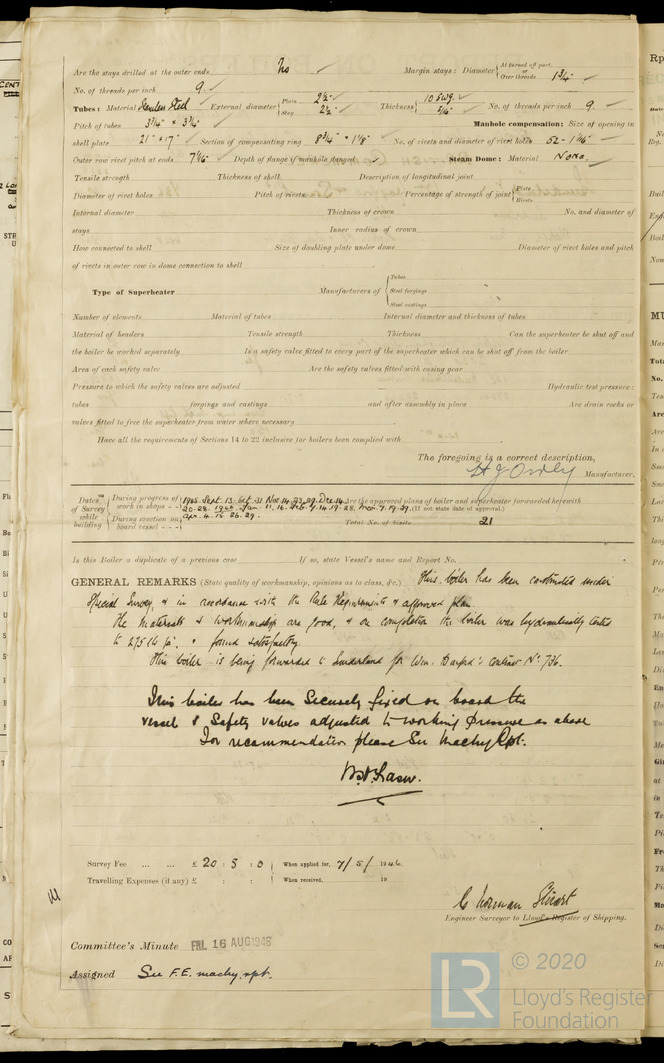 Are the stays drilled at the outer ends No Margin stays: Diameter { At turned off part, or Over threads 1 3/4"
No. of threads per inch 9
Tubes: Material Seamless Steel External diameter { Plain 2 1/2" Stay 2 1/2" Thickness { 10 SWG. 5/16" No. of threads per inch 9
Pitch of tubes 3 3/4" x 3 3/4" Manhole compensation: Size of opening in
shell plate 21" x 17" Section of compensating ring 8 3/4" x 1 1/8" No. of rivets and diameter of rivet holes 52 - 1 1/16"
Outer row rivet pitch at ends 7 1/16" Depth of flange if manhole flanged Steam Dome: Material None.
Tensile strength Thickness of shell Description of longitudinal joint
Diameter of rivet holes Pitch of rivets Percentage of strength of joint { Plate Rivets
Internal diameter Thickness of crown No. and diameter of
stays Inner radius of crown
How connected to shell Size of doubling plate under dome Diameter of rivet holes and pitch
of rivets in outer row in dome connection to shell
Type of Superheater Manufacturers of { Tubes Steel forgings Steel castings
Number of elements Material of tubes Internal diameter and thickness of tubes
Material of headers Tensile strength Thickness Can the superheater be shut off and
the boiler be worked separately Is a safety valve fitted to every part of the superheater which can be shut off from the boiler
Area of each safety valve Are the safety valves fitted with easing gear
Pressure to which the safety valves are adjusted Hydraulic test pressure:
tubes forgings and castings and after assembly in place Are drain cocks or
valves fitted to free the superheater from water where necessary
Have all the requirements of Sections 14 to 22 inclusive for boilers been complied with
The foregoing is a correct description,
Manufacturer.
Dates of Survey while building { During progress of work in shops - - 1945 Sept. 13. Oct. 31 Nov. 14. 23. 29. Dec. 14 Are the approved plans of boiler and superheater forwarded herewith
20. 28. 1946 Jan. 11. 16. Feb. 7. 14. 19. 28. Mar. 7. 19. 29. (If not state date of approval.)
During erection on board vessel - - - Apr. 4. 16. 26. 29. Total No. of visits 21
Is this Boiler a duplicate of a previous case If so, state Vessel's name and Report No.
GENERAL REMARKS (State quality of workmanship, opinions as to class, &c.) This boiler has been constructed under
Special Survey, & in accordance with the Rule Requirements & approved plan.
The materials & workmanship are good, & on completion the boiler was hydraulically tested
to 275 lb □", & found satisfactory.
This boiler is being forwarded to Sunderland for Wm. contract No. 736.
This boiler has been securely fixed on board the
vessel & Safety valves adjusted to working pressure as above
For recommendation please See Machy Rpt.
Survey Fee ... ... £ 20 : 5 : 0 When applied for, 7/5/1946
Travelling Expenses (if any) £ : : When received, 19
C Norman Stuart
Engineer Surveyor to Lloyd's Register of Shipping.
Committee's Minute FRI. 16 AUG 1946
Assigned See F.E. machy. rpt.
© 2020
LR Lloyd's Register
Foundation